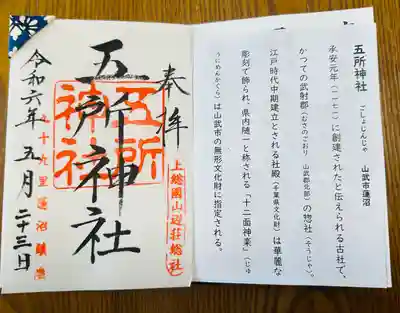 五所神社　ごしょじんじゃ　山武市蓮沼
永安元年（一一七一）に創建されたと伝えられる古社で、
かつての武射郡（むさのごおり　山武郡北部）の惣社（そうじゃ）。
江戸時代中期建立とされる社殿（千葉県文化財）は華麗な
彫刻で飾られ、県内随一と称される「十二面神楽」（じゅ
うにめんかぐら）は山武市の無形文化財に指定される。
奉拝
上総國山辺荘総社
五所神社
五所神社
九十九里蓮沼鎮座
令和六年五月二十三日